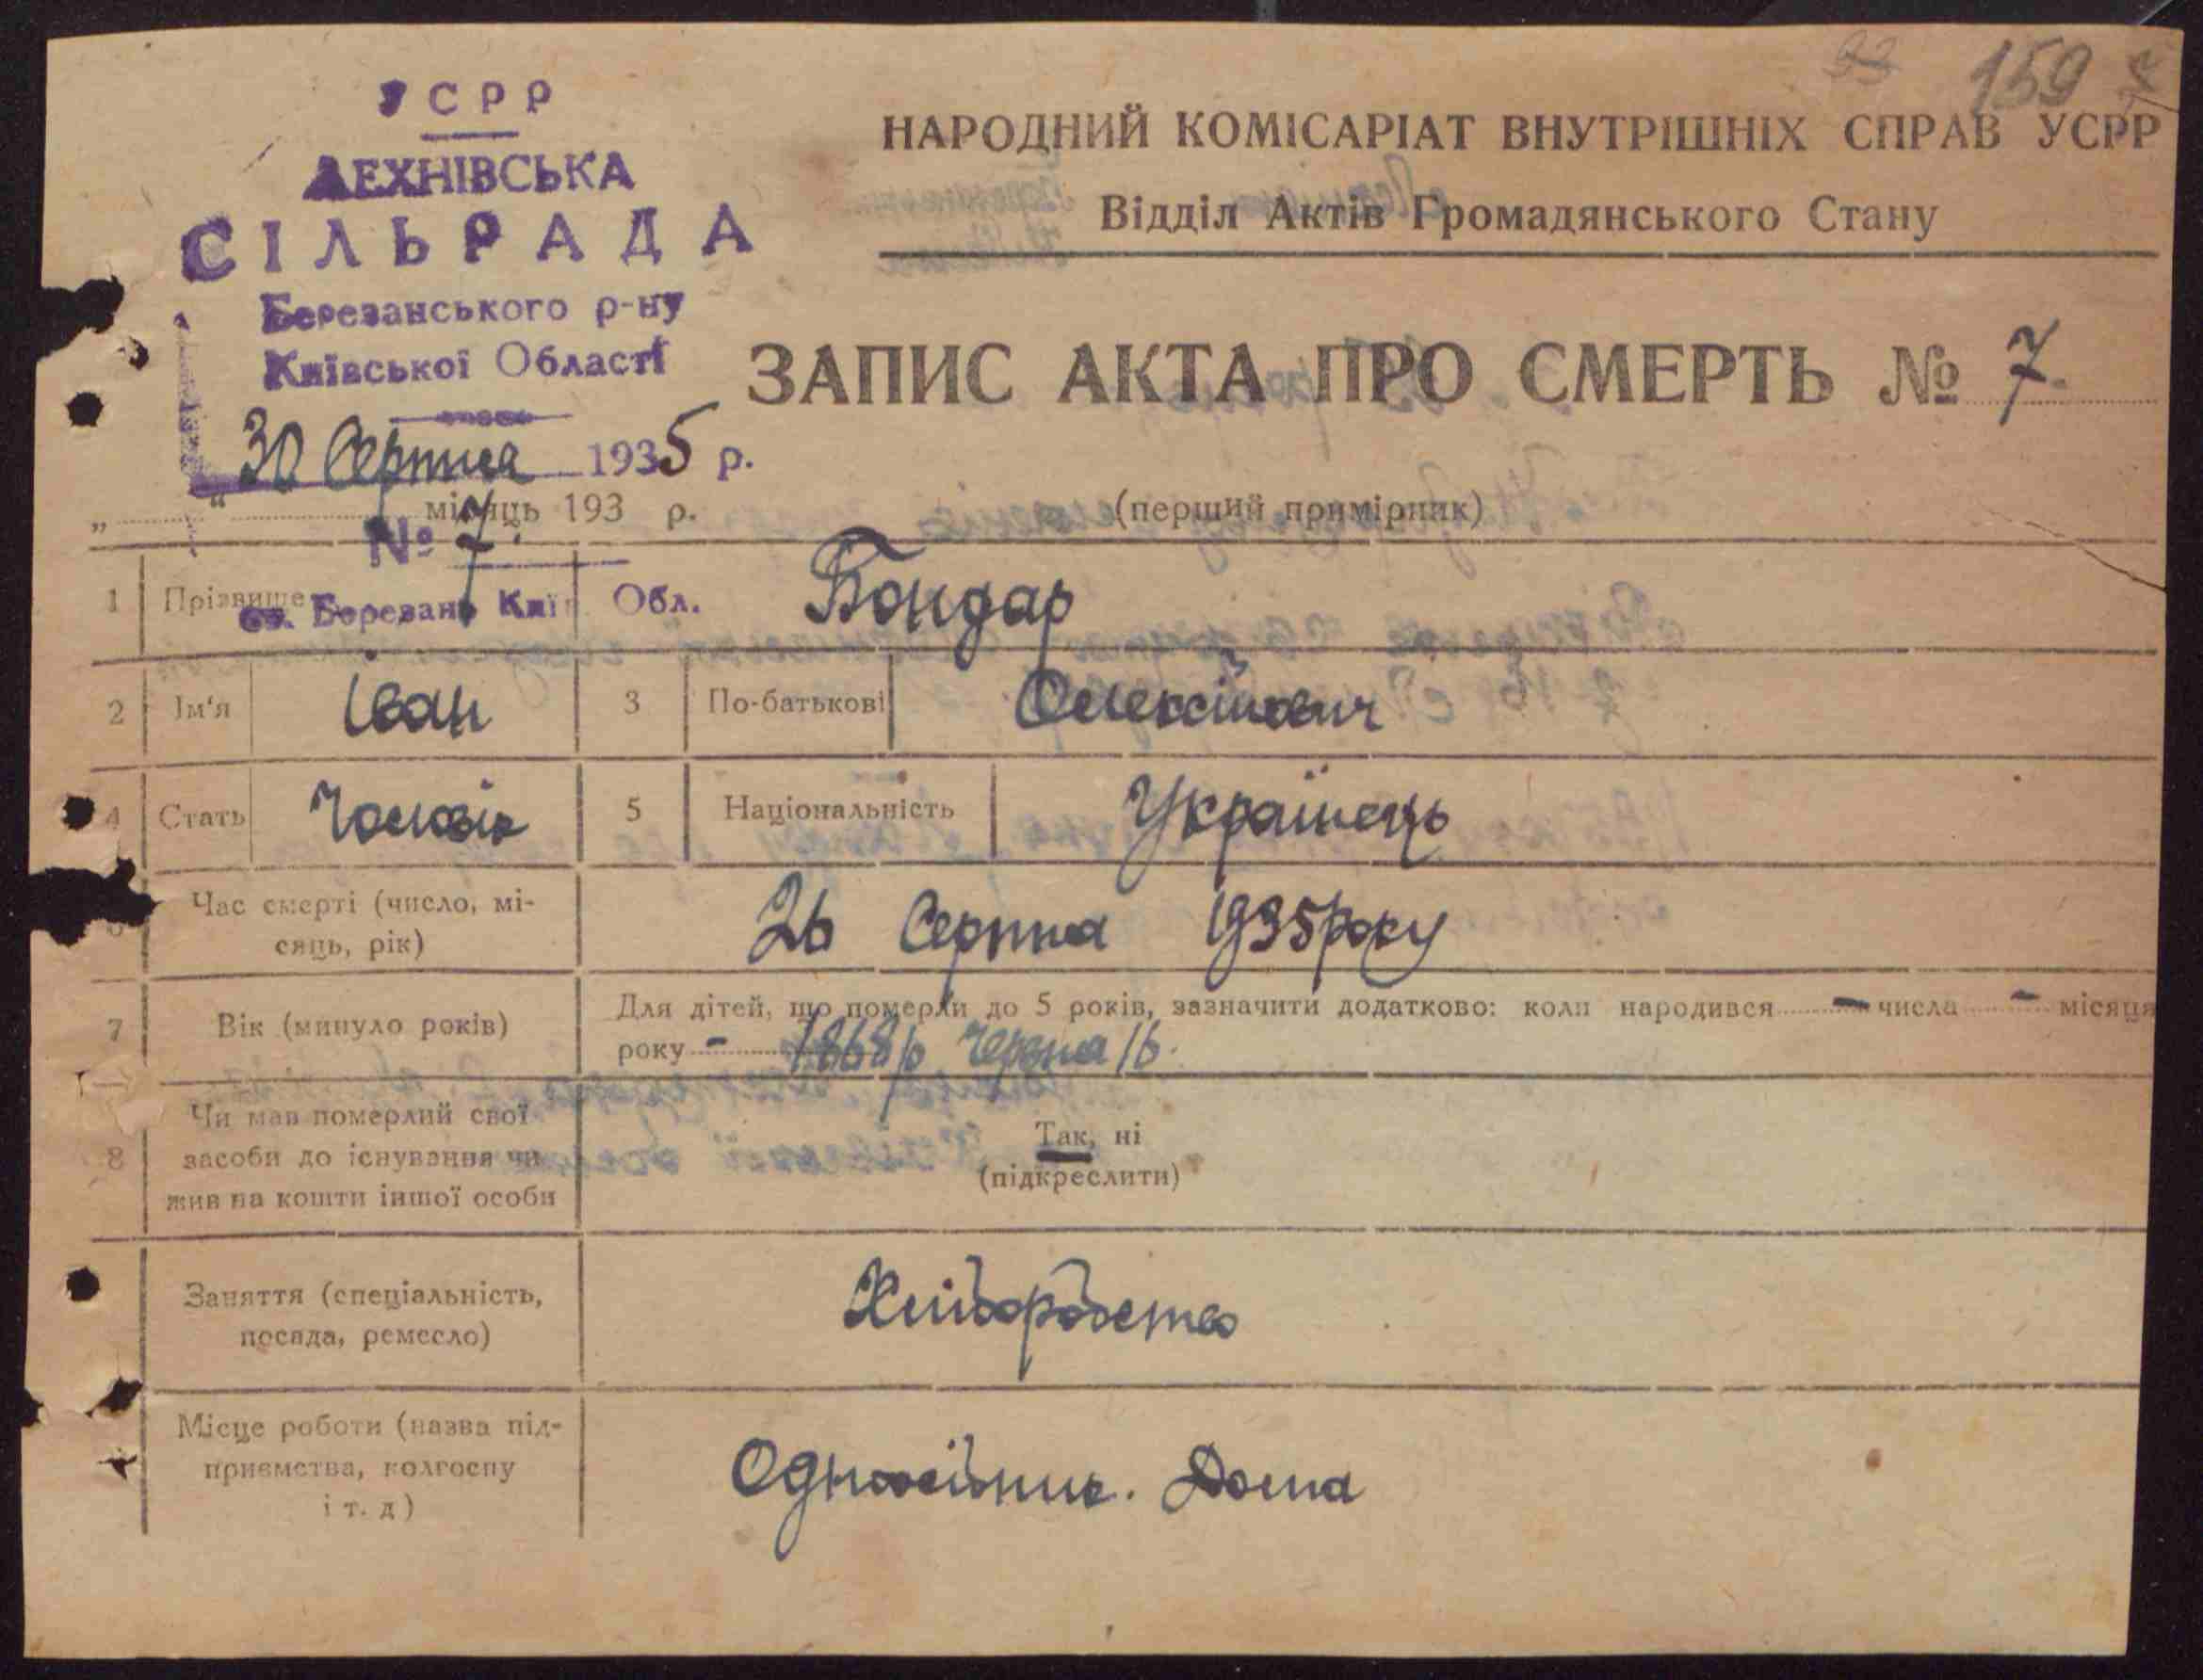 159
УСРР
ЛЕХНІВСЬКА
СІЛЬРАДА
Березанського р-ну
Київської Області
30 Серпня 1935 р.
№ 7.
ст. Березань Київ. Обл.
НАРОДНИЙ КОМІСАРІАТ ВНУТРІШНІХ СПРАВ УСРР
Відділ Актів Громадянського Стану
ЗАПИС АКТА ПРО СМЕРТЬ № 7.
„ “ місяць 193 р.
(перший примірник)
1 Прізвище Бондар
2 Ім'я Іван 3 По-батькові Олексійович
4 Стать Чоловік 5 Національність Українець
6 Час смерті (число, мі-
сяць, рік) 26 Серпня 1935 року
7 Вік (минуло років) Для дітей, що померли до 5 років, зазначити додатково: коли народився - числа - місяця
року - 1868 р Червня 16.
8 Чи мав померлий свої
засоби до існування чи
жив на кошти іншої особи
Так, ні
(підкреслити)
Заняття (спеціальність,
посада, ремесло) Хліборобство
Місце роботи (назва під-
приємства, колгоспу
і т. д) Одноосібник. Дома